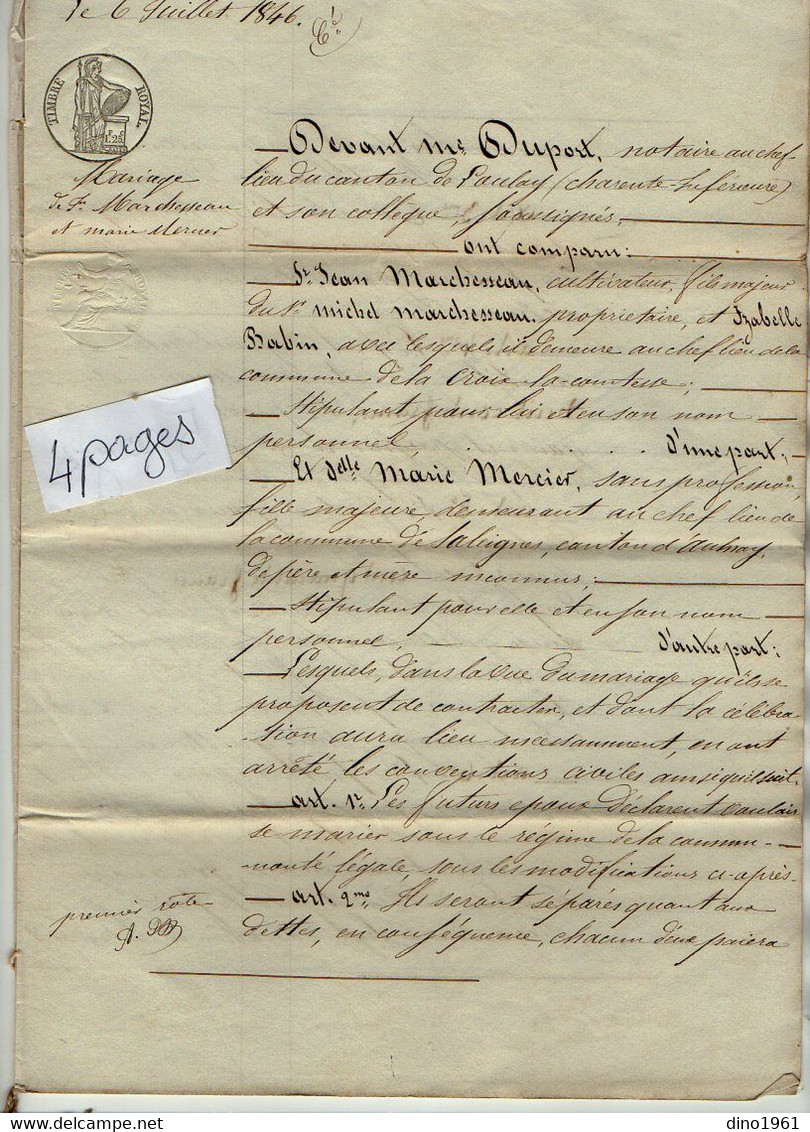 Le 6 Juillet 1846.
TIMBRE ROYAL
1 F. 25 C.
Mariage
de Sr. Marchesseau
et marie Mercier
4 pages
— Devant Me Duport, notaire au chef-
lieu du canton de Loulay (charente-Inférieure)
et son collègue, soussignés.
ont comparu :
— Sr Jean Marchesseau, cultivateur, fils majeur
du Sr michel marchesseau, propriétaire, et Izabelle
Babin, avec lesquels il demeure au chef lieu de la
commune de la Croix-la-comtesse ;
— Stipulant pour lui et en son nom
personnel, . . . . . . d'une part ;
— Et delle Marie Mercier, sans profession,
fille majeure demeurant au chef lieu de
la commune de Saleignes, canton d'Aulnay,
de père et mère inconnus ;
— Stipulant pour elle et en son nom
personnel, d'autre part ;
— Lesquels, dans la vue du mariage qu'ils se
proposent de contracter, et dont la célébra-
-tion aura lieu incessamment, en ont
arrêté les conventions civiles ainsi qu'il suit.
— art. 1er Les futurs epoux déclarent vouloir
se marier sous le régime de la commu-
-nauté légale, sous les modifications ci-après-
— art. 2me Ils seront séparés quant aux
dettes, en conséquence, chacun d'eux paiera
premier rôle
dino1961